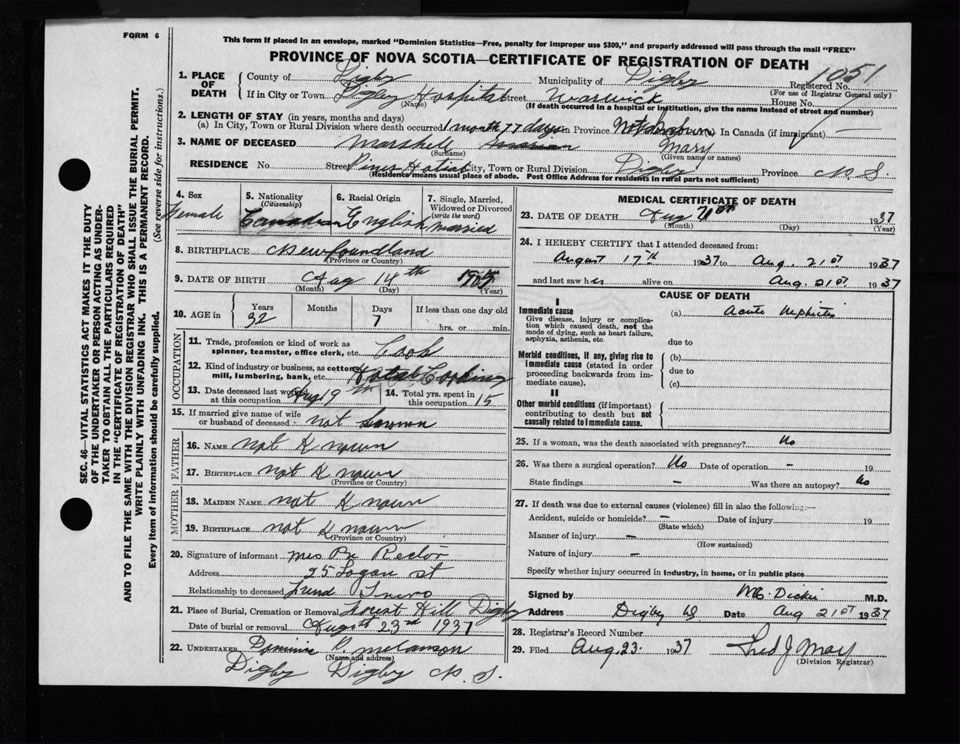 FORM 6
This form if placed in an envelope, marked "Dominion Statistics—Free, penalty for improper use $300," and properly addressed will pass through the mail "FREE"
PROVINCE OF NOVA SCOTIA—CERTIFICATE OF REGISTRATION OF DEATH
1051
1. PLACE OF DEATH
County of Digby Municipality of Digby Registered No.
(For use of Registrar General only)
If in City or Town Digby Hospital Street Warwick House No.
(Name) (If death occurred in a hospital or institution, give the name instead of street and number)
2. LENGTH OF STAY (in years, months and days)
(a) In City, Town or Rural Division where death occurred 1 month 7 days in Province Not known In Canada (if immigrant) —
3. NAME OF DECEASED Marshell Mary
(Surname) (Given name or names)
RESIDENCE No. Street Pines Hotel City, Town or Rural Division Digby Province N. S.
(Residence means usual place of abode. Post Office Address for residents in rural parts not sufficient)
4. Sex Female
5. Nationality (Citizenship) Canadian
6. Racial Origin English
7. Single, Married, Widowed or Divorced (write the word) Married
8. BIRTHPLACE Newfoundland
(Province or Country)
9. DATE OF BIRTH Aug 14th 1905
(Month) (Day) (Year)
10. AGE in Years 32 Months Days 7 If less than one day old hrs. or min.
OCCUPATION
11. Trade, profession or kind of work as spinner, teamster, office clerk, etc. Cook
12. Kind of industry or business, as cotton mill, lumbering, bank, etc. Hotel Cooking
13. Date deceased last worked at this occupation Aug 19
14. Total yrs. spent in this occupation 15
15. If married give name of wife or husband of deceased not known
FATHER
16. NAME not Known
17. BIRTHPLACE not Known
(Province or Country)
MOTHER
18. MAIDEN NAME not Known
19. BIRTHPLACE not Known
(Province or Country)
20. Signature of informant Mrs Rector
Address 25 Logan st
Relationship to deceased friend Truro
21. Place of Burial, Cremation or Removal Forest Hill Digby
Date of burial or removal August 23rd 1937
22. UNDERTAKER Dominic P. Melanson
(Name and address)
Digby Digby N. S.
MEDICAL CERTIFICATE OF DEATH
23. DATE OF DEATH Aug 21st 1937
(Month) (Day) (Year)
24. I HEREBY CERTIFY that I attended deceased from:
August 17th 1937 to Aug. 21st 1937
and last saw her alive on Aug. 21st 1937
CAUSE OF DEATH
I
Immediate cause
Give disease, injury or complication which caused death, not the mode of dying, such as heart failure, asphyxia, asthenia, etc.
(a) Acute Nephritis
due to
Morbid conditions, if any, giving rise to immediate cause (stated in order proceeding backwards from immediate cause).
(b)
due to
(c)
II
Other morbid conditions (if important) contributing to death but not causally related to immediate cause.
25. If a woman, was the death associated with pregnancy? No
26. Was there a surgical operation? No Date of operation — 19
State findings — Was there an autopsy? No
27. If death was due to external causes (violence) fill in also the following:—
Accident, suicide or homicide? — Date of injury 19
(State which)
Manner of injury —
(How sustained)
Nature of injury —
Specify whether injury occurred in industry, in home, or in public place
Signed by Dickie M.D.
Address Digby NS Date Aug 21st 1937
28. Registrar's Record Number
29. Filed Aug. 23. 1937 Fred J May
(Division Registrar)
SEC. 46—VITAL STATISTICS ACT MAKES IT THE DUTY OF THE UNDERTAKER OR PERSON ACTING AS UNDERTAKER TO OBTAIN ALL THE PARTICULARS REQUIRED IN THE "CERTIFICATE OF REGISTRATION OF DEATH" AND TO FILE THE SAME WITH THE DIVISION REGISTRAR WHO SHALL ISSUE THE BURIAL PERMIT.
WRITE PLAINLY WITH UNFADING INK. THIS IS A PERMANENT RECORD.
Every item of information should be carefully supplied. (See reverse side for instructions.)